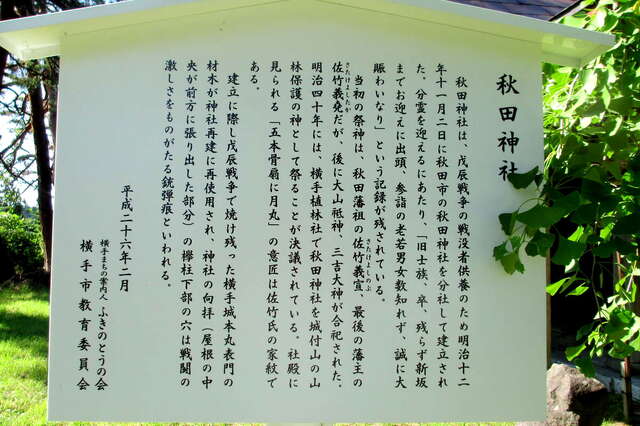 秋田神社
秋田神社は、戊辰戦争の戦没者供養のため明治十二
年十一月二日に秋田市の秋田神社を分社して建立され
た。分霊を迎えるにあたり、「旧士族、卒、残らず新坂
までお迎えに出頭、参詣の老若男女数知れず、誠に大
賑わいなり」という記録が残されている。
当初の祭神は、秋田藩祖の佐竹義宣、最後の藩主の
さたけよしのぶ
佐竹義堯だが、後に大山祗神、三吉大神が合祀された。
さたけよしたか
明治四十年には、横手植林社で秋田神社を城付山の山
林保護の神として祭ることが決議されている。社殿に
見られる「五本骨扇に月丸」の意匠は佐竹氏の家紋で
ある。
建立に際し戊辰戦争で焼け残った横手城本丸表門の
材木が神社再建に再使用され、神社の向拝（屋根の中
央が前方に張り出した部分）の欅柱下部の穴は戦闘の
激しさをものがたる銃弾痕といわれる。
平成二十六年二月
横手まちの案内人 ふきのとうの会
横手市教育委員会